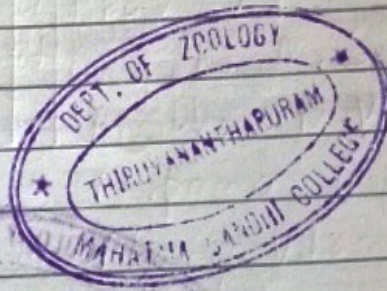 DEPT. OF ZOOLOGY
THIRUVANANTHAPURAM
MAHATMA GANDHI COLLEGE